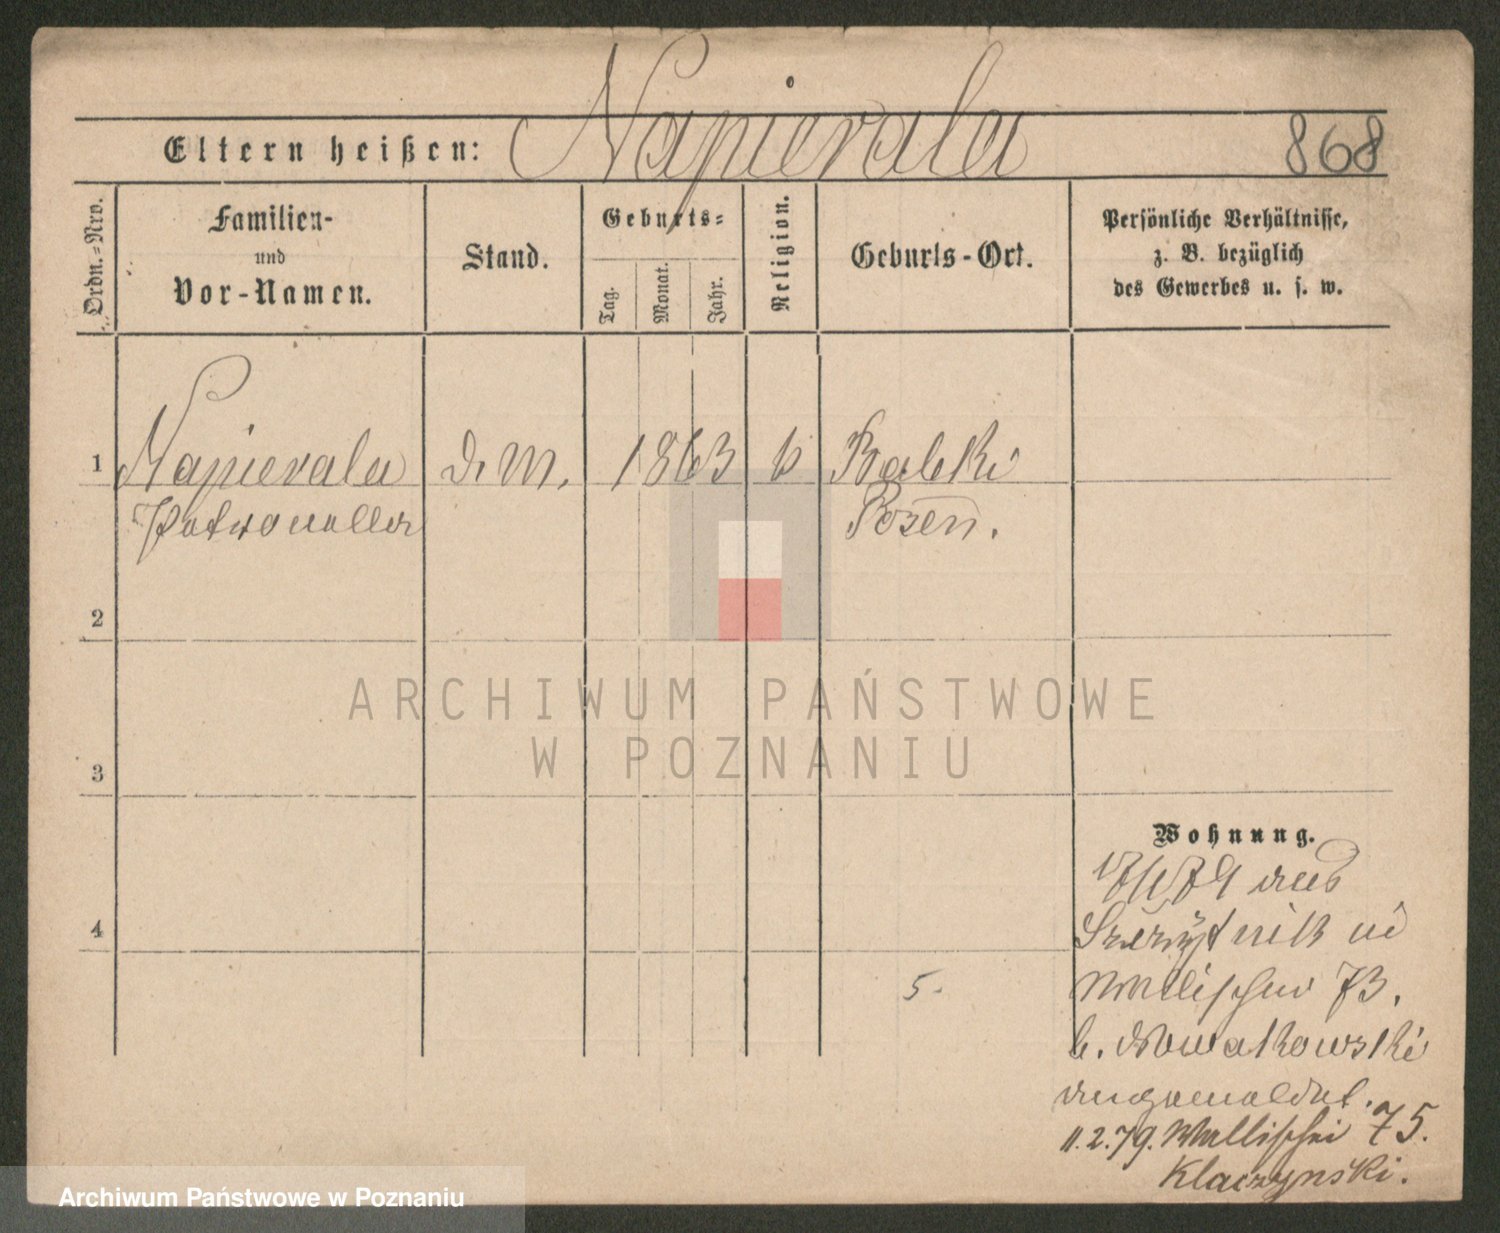 Eltern heißen: Napierala 868
Ordn.-Nro.
Familien-
und
Vor-Namen.
Stand.
Geburts-
Tag.
Monat.
Jahr.
Religion.
Geburts-Ort.
Persönliche Verhältnisse,
z. B. bezüglich
des Gewerbes u. s. w.
1 Napierala d. M. 1863 k Babki
Petronella Posen.
2
3
4
5.
Wohnung.
17/1 79 aus
Wallischei 73.
b. Nowakowski
angemeldet.
11.2.79. Wallischei 75.
Klaczynski.
ARCHIWUM PAŃSTWOWE
W POZNANIU
Archiwum Państwowe w Poznaniu